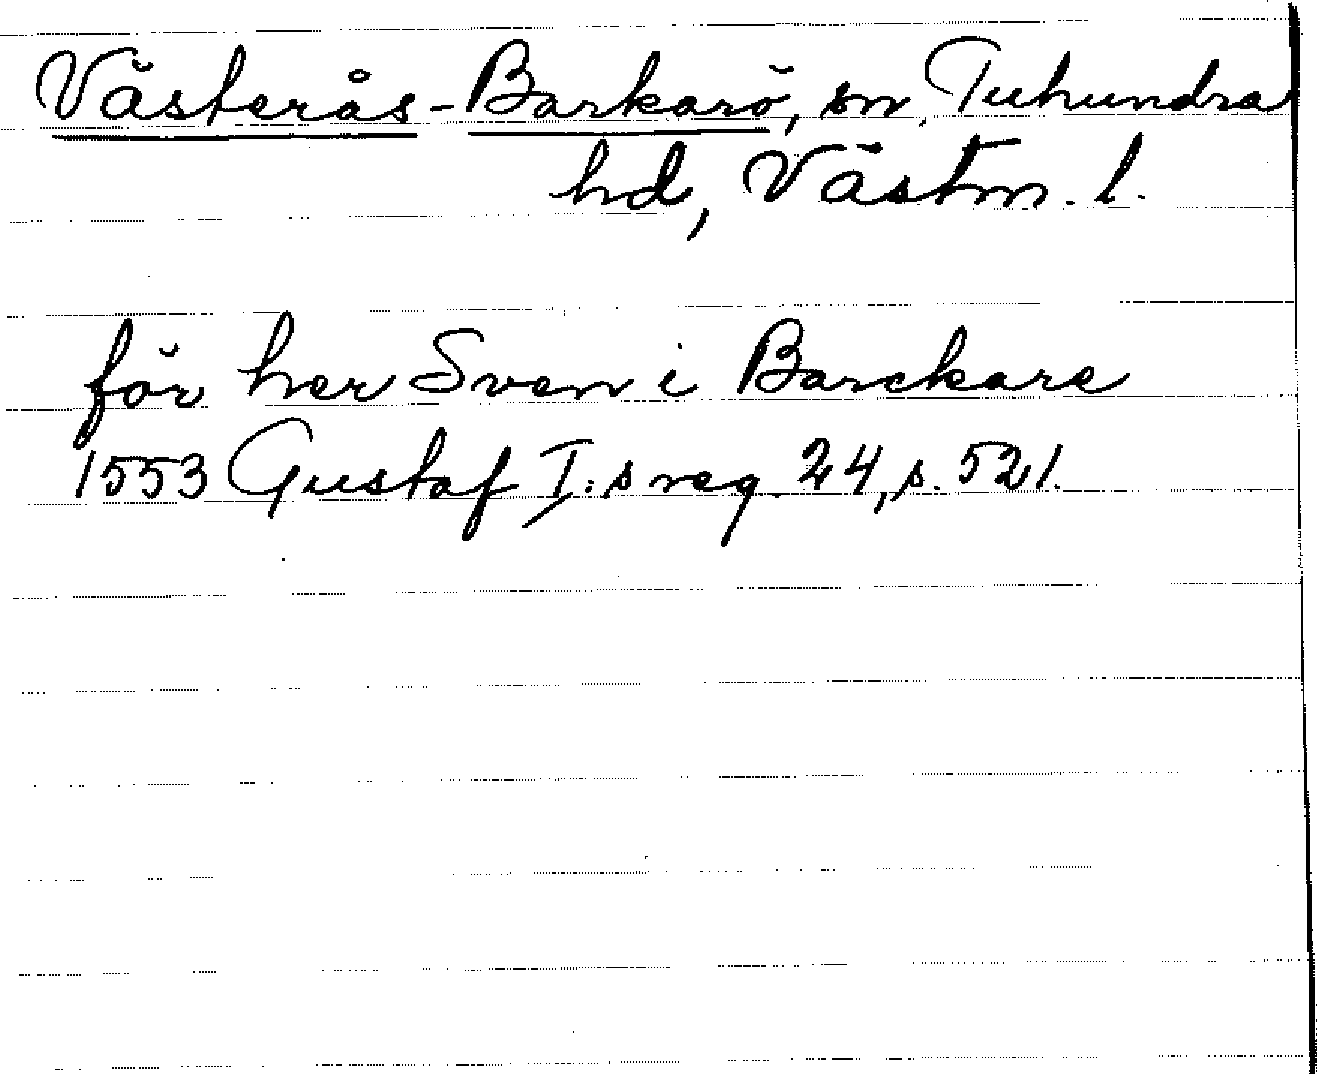 Västerås-Barkarö, sn, Tuhundra
hd, Västm. l.
för her Sven i Barckare
1553 Gustaf I:s reg. 24, s. 521.